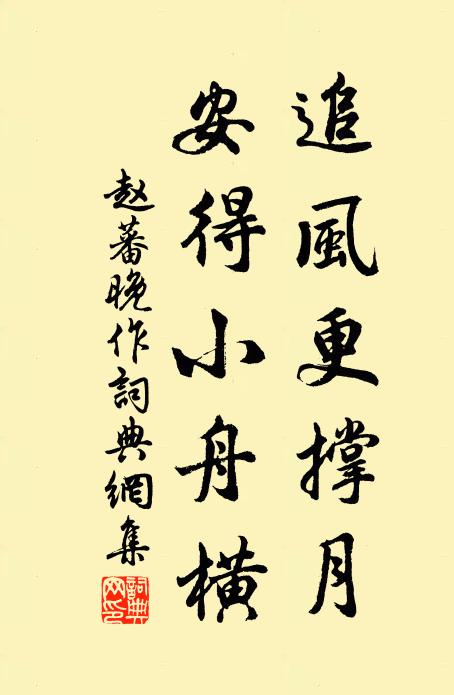 追風更撑月
安得小舟橫
赵蕃晚作詞典網集
詞典網印